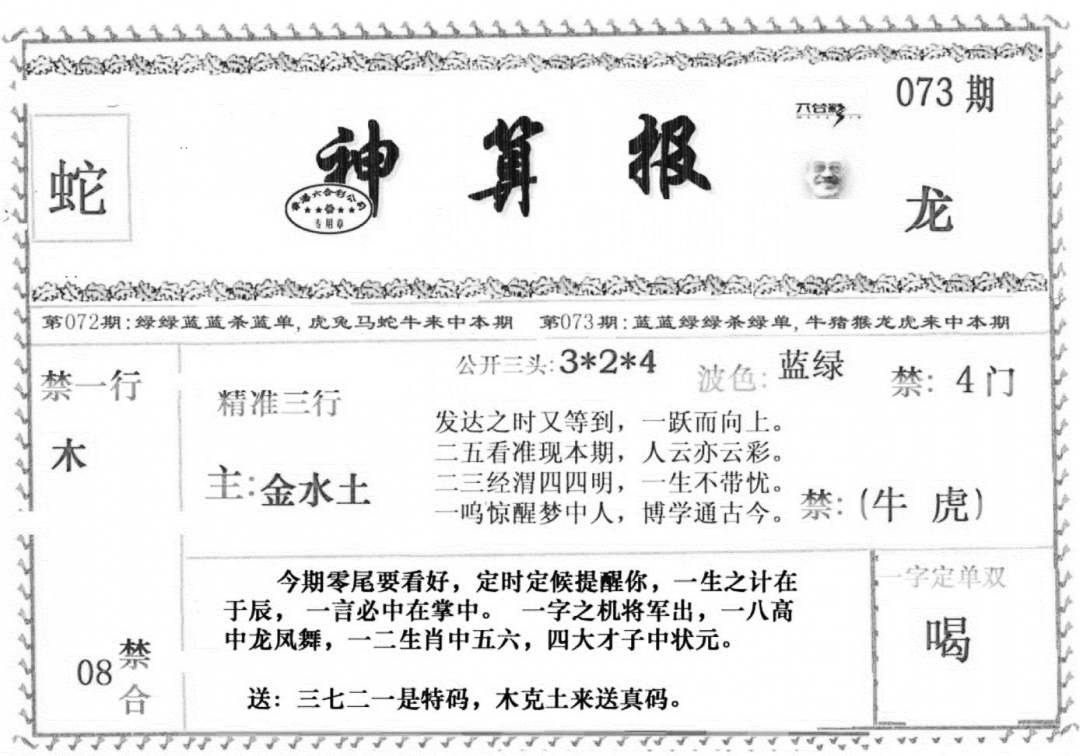 073期
六合彩
蛇
神算报
香港六合彩公司
专用章
龙
第072期:绿绿蓝蓝杀蓝单,虎兔马蛇牛来中本期 第073期:蓝蓝绿绿杀绿单,牛猪猴龙虎来中本期
禁一行
木
精准三行
主:金水土
公开三头:3*2*4
波色:蓝绿
禁:4门
发达之时又等到，一跃而向上。
二五看准现本期，人云亦云彩。
二三经渭四四明，一生不带忧。
一鸣惊醒梦中人，博学通古今。
禁:(牛 虎)
08禁合
今期零尾要看好，定时定候提醒你，一生之计在
于辰， 一言必中在掌中。 一字之机将军出，一八高
中龙凤舞，一二生肖中五六，四大才子中状元。
送：三七二一是特码，木克土来送真码。
一字定单双
喝